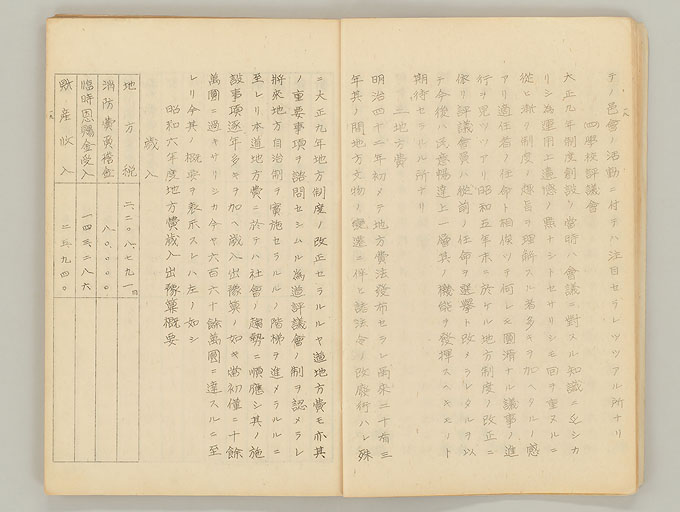 テノ邑會ノ活動ニ付テハ注目セラレツツアル所ナリ
四學校評議會
大正九年制度創設ノ當時ハ會議ニ對スル知識ニ乏シカ
リシ為運用上遺憾ノ點ナシトセサリシモ回ヲ重ヌルニ
從ヒ漸ク制度ノ趣旨ヲ理解スル者多キヲ加ヘタルノ感
アリ適任者ノ任命ト相俟ツテ何レモ圓滑ナル議事ノ進
行ヲ見ツツアリ昭和五年末ニ於ケル地方制度ノ改正ニ
依リ評議會員ハ從前ノ任命ヲ選擧ト改メラレタルヲ以
テ今後ハ民意暢達上一層其ノ機能ヲ發揮スヘキモノト
期待セラルル所ナリ
二地方費
明治四十二年初メテ地方費法發布セラレ爾來二十有三
年其ノ間地方文物ノ變遷ニ伴ヒ諸法令ノ改廢行ハレ殊
ニ大正九年地方制度ノ改正セラルルヤ道地方費モ亦其
ノ重要事項ヲ諮問セシムル為道評議會ノ制ヲ認メラレ
將來地方自治制ヲ實施セラルルノ階梯ヲ進メラルルニ
至レリ本道地方費ニ於テハ社會ノ趨勢ニ順應シ其ノ施
設事項逐年多キヲ加ヘ歲入出豫算ノ如キ當初僅ニ十餘
萬圓ニ過キサリシカ今ヤ六百六十餘萬圓ニ達スルニ至
レリ今其ノ概要ヲ表示スレハ左ノ如シ
昭和六年度地方費歲入出豫算概要
歲入
地方稅 六二〇八七九一円
消防費寄捨金 八〇〇〇〇
臨時恩賜金受入 一四三二八六
財產收入 二五九四〇